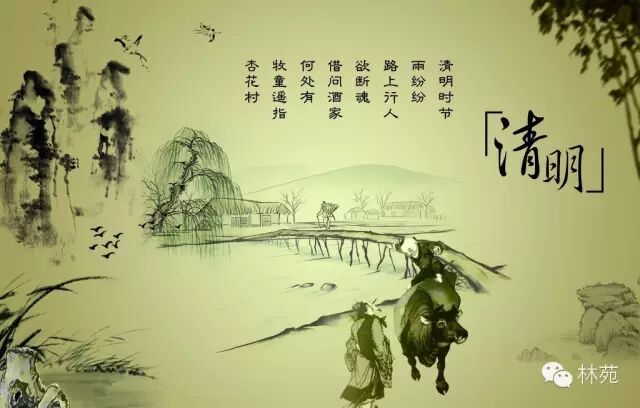 「清明」
清明时节
雨纷纷
路上行人
欲断魂
借问酒家
何处有
牧童遥指
杏花村
林苑